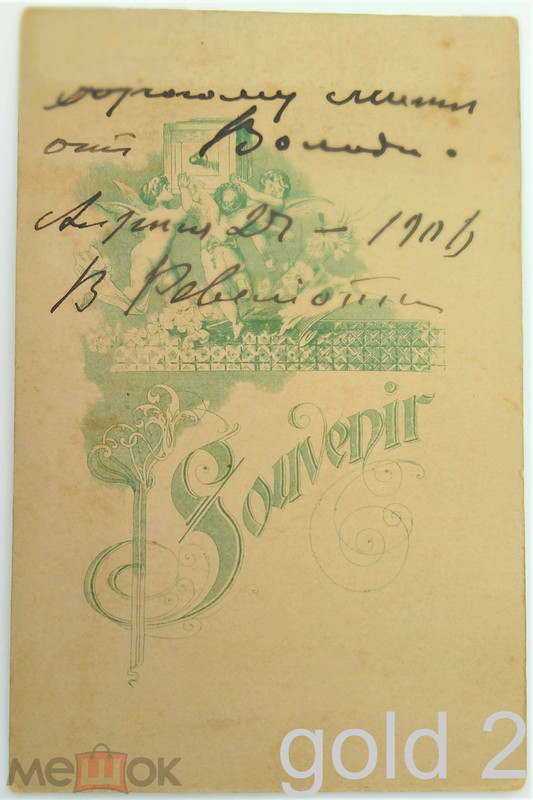 дорогому Мити
от Володи.
Апреля 27 – 190
В
Souvenir
мешок
gold 2